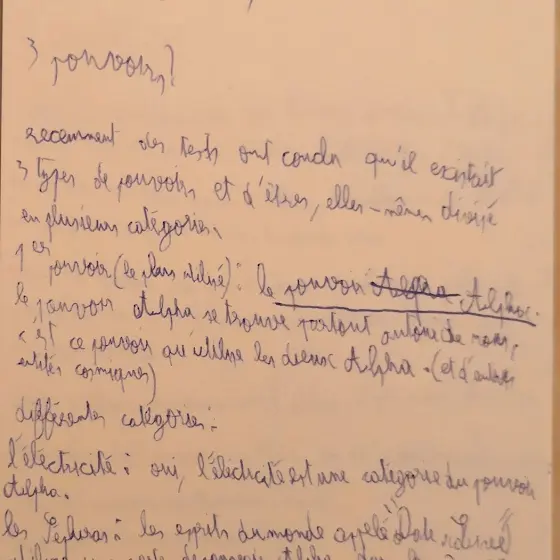 3 pouvoirs?
recemment des tests ont conclu qu'il existait
3 types de pouvoirs et d'êtres, elles-mêmes divisé
en plusieurs catégories.
1er pouvoir (le plus utilisé): le pouvoir Alpha Alpha.
le pouvoir Alpha se trouve partout autour de nous,
c'est ce pouvoir qu'utilise les dieux Alpha. (et d'autres
entités cosmiques)
différentes catégories:
l'éléctricité: oui, l'éléctricité est une catégorie du pouvoir
Alpha.
les : les esprits du monde appelé